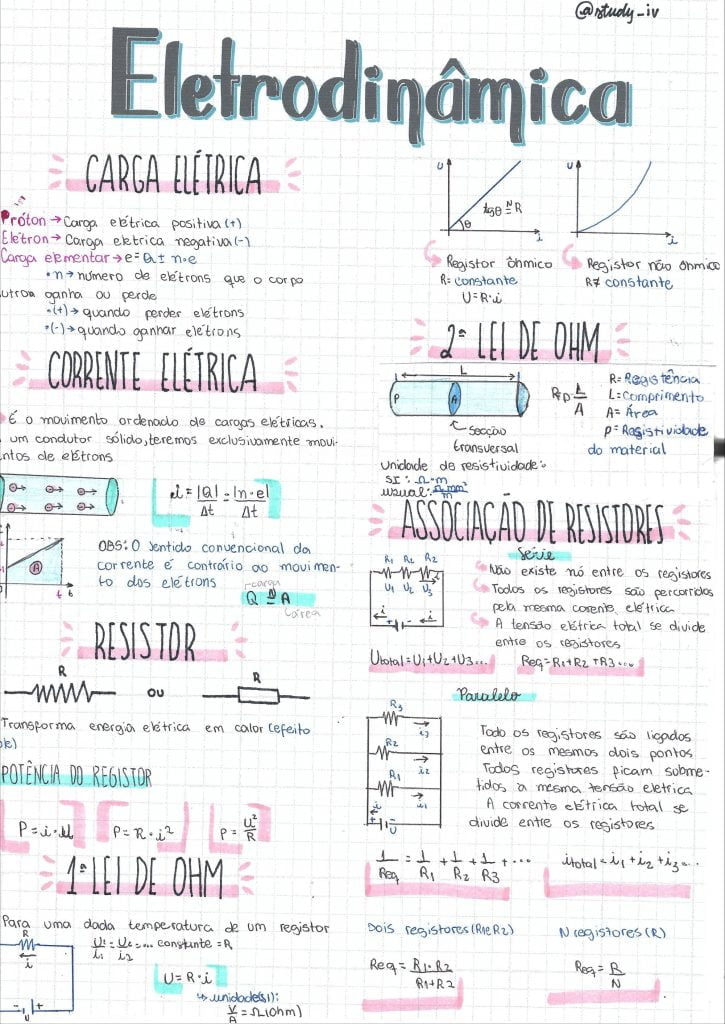 @study_iv
Eletrodinâmica
CARGA ELÉTRICA
Próton → Carga elétrica positiva (+)
Elétron → Carga eletrica negativa (-)
Carga elementar → e = Q ± n·e
• n → número de elétrons que o corpo
ganha ou perde
• (+) → quando perder elétrons
• (-) → quando ganhar elétrons
CORRENTE ELÉTRICA
É o movimento ordenado de cargas elétricas.
um condutor sólido, teremos exclusivamente movi-
ntos de elétrons
i = |Q|/Δt = |n·e|/Δt
A
t
OBS: O sentido convencional da
corrente é contrário ao movimen-
to dos elétrons
carga
Q N= A
área
RESISTOR
R
OU
R
Transforma energia elétrica em calor (efeito
le)
POTÊNCIA DO REGISTOR
P = i·U
P = R·i²
P = U²/R
1ª LEI DE OHM
Para uma dada temperatura de um registor
U₁/i₁ = U₂/i₂ = ... constante = R
R
i
U
- +
U = R·i
unidade(s.i):
V/A = Ω (Ohm)
U
tgθ N= R
θ
i
Registor ôhmico
R = constante
U = R·i
U
i
Registor não ôhmico
R ≠ constante
2ª LEI DE OHM
L
P
A
secção
transversal
R = ρ L/A
R = Registência
L = Comprimento
A = Área
ρ = Resistividade
do material
Unidade de resistividade:
SI: Ω·m
usual: Ω·mm²/m
ASSOCIAÇÃO DE RESISTORES
Série
R₁ R₂ R₂
U₁ U₂ U₃
i
Não existe nó entre os registores
Todos os registores são percorridos
pela mesma corente elétrica
A tensão elétrica total se divide
entre os registores
Utotal = U₁+U₂+U₃...
Req = R₁+R₂+R₃...
Paralelo
R₃
i₃
R₂
i₂
R₁
i₁
i
+ -
U
Todo os registores são ligados
entre os mesmos dois pontos
Todos registores ficam subme-
tidos à mesma tensão eletrica
A corrente elétrica total se
divide entre os registores
1/Req = 1/R₁ + 1/R₂ + 1/R₃ + ...
itotal = i₁ + i₂ + i₃ = ...
Dois registores (R1 e R2)
Req = R₁·R₂/R₁+R₂
N registores (R)
Req = R/N